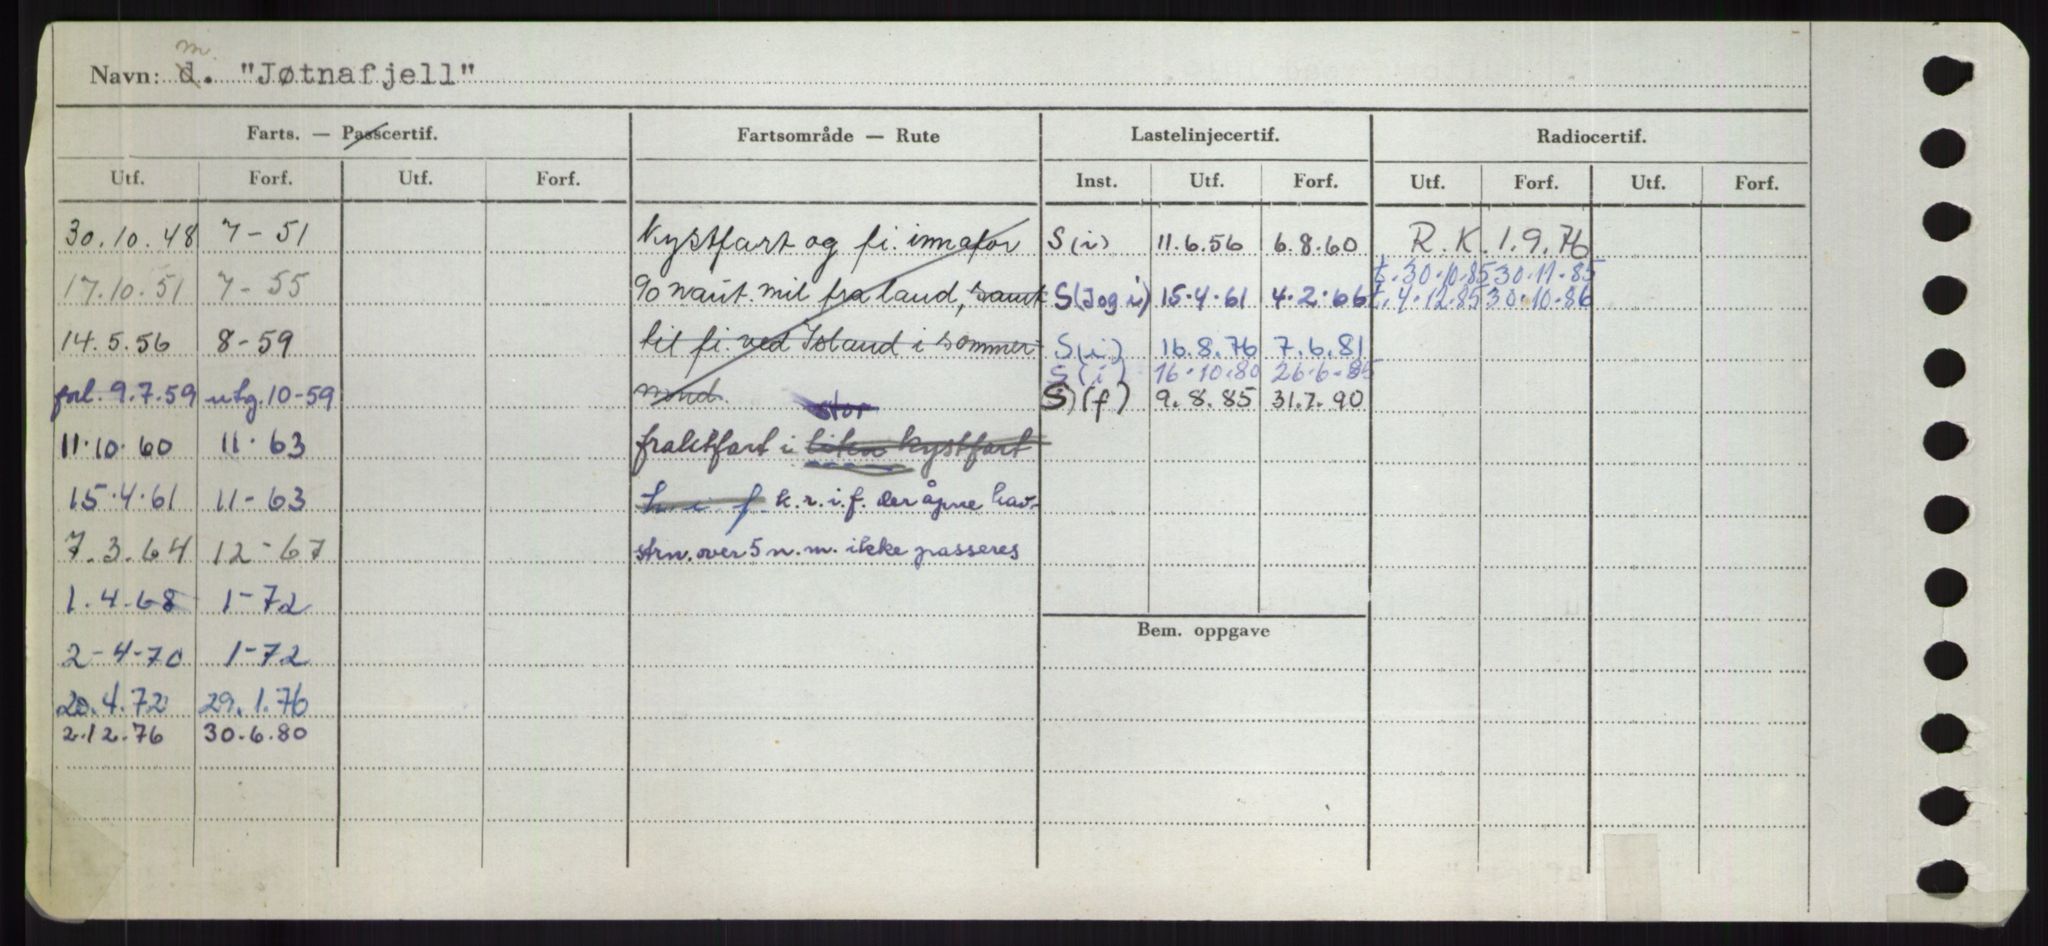 m
Navn: d. "Jøtnafjell"
Farts. — Passcertif. Fartsområde — Rute Lastelinjecertif. Radiocertif.
Utf. Forf. Utf. Forf. Inst. Utf. Forf. Utf. Forf. Utf. Forf.
30.10.48 7-51 Kystfart og fi. innafor S(i) 11.6.56 6.8.60 R.K. 1.9.76
t. 30.10.85 30.11.85
17.10.51 7-55 90 naut. mil fra land, samt S(J og i) 15.4.61 4.2.66 t. 4.12.85 30.10.86
14.5.56 8-59 til fi. ved Island i sommer- S(i) 16.8.76 7.6.81
S(i) 16.10.80 26.6.85
forl. 9.7.59 utg. 10-59 mnd. S)(f) 9.8.85 31.7.90
stor
11.10.60 11.63 fraktfart i liten kystfart
15.4.61 11-63 k. i f. k.r.i.f. der åpne hav-
7.3.64 12-67 strn. over 5 n.m. ikke passeres
1.4.68 1-72
Bem. oppgave
2-4-70 1-72
20.4.72 29.1.76
2.12.76 30.6.80